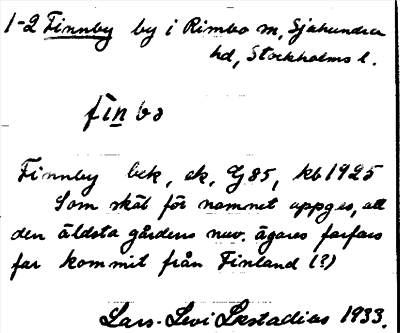 1-2 Finnby by i Rimbo sn, Sjuhundra
hd, Stockholms l.
fìnbə
Finnby bek, ek, G 85, kb 1925
Som skäl för namnet uppges, att
den äldsta gårdens nuv. ägares farfars
far kommit från Finland (?)
Lars-Levi Læstadius 1933.